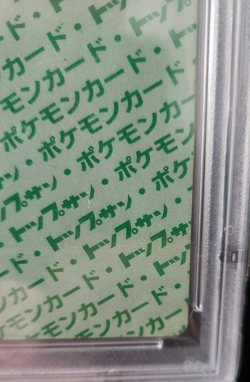 カード・トッ
モンカード・ト
ケモンカード・
・ポケモンカード
ン・ポケモンカー
サン・ポケモン
トップサン・ポケ
・トップサン・
ド・トップサン
カード・トップ
ンカード・
モンカード